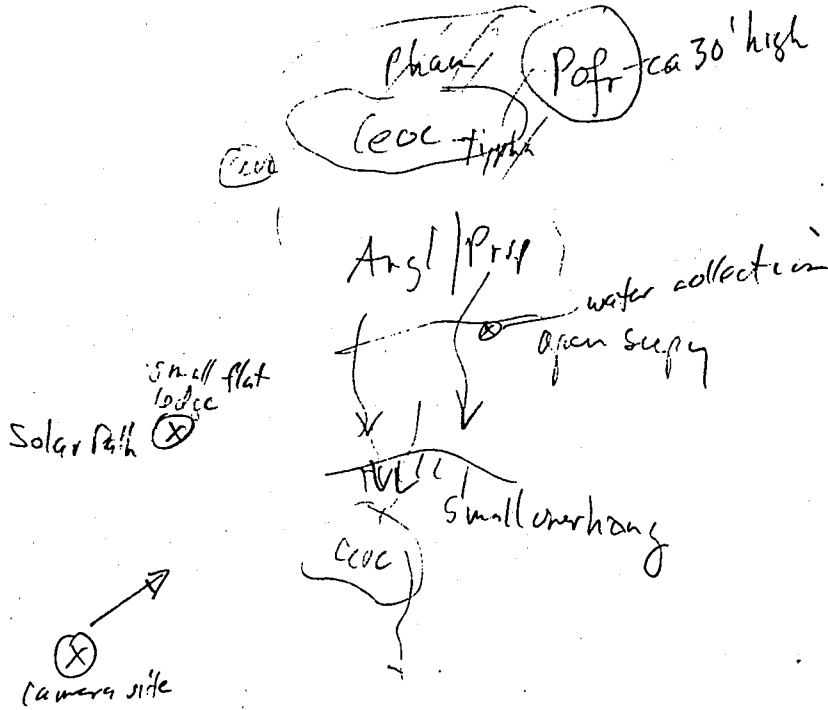 Phau
Pofr - ca 30' high
Ceoc
typha
Ceoc
Argl / Prsp
water collection
open seepy
small flat
ledge
Solar Path X
Small overhang
Ceoc
X
camera site